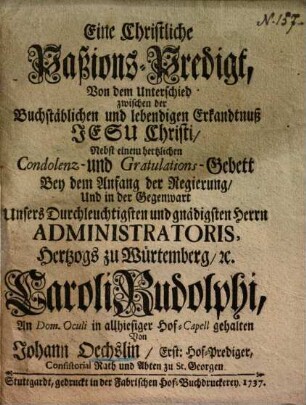 N. 157.
Eine Christliche
Paßions-Predigt,
Von dem Unterschied
zwischen der
Buchstäblichen und lebendigen Erkandtnuß
JESU Christi/
Nebst einem hertzlichen
Condolenz- und Gratulations-Gebett
Bey dem Anfang der Regierung/
Und in der Gegenwart
Unsers Durchleuchtigsten und gnädigsten Herrn
ADMINISTRATORIS,
Hertzogs zu Würtemberg/ ꝛc.
Caroli Rudolphi,
An Dom. Oculi in allhiesiger Hof-Capell gehalten
Von
Johann Oechslin/ Erst: Hof-Prediger,
Consistorial Rath und Abten zu St. Georgen.
Stuttgardt, gedruckt in der Fabrischen Hof-Buchdruckerey. 1737.